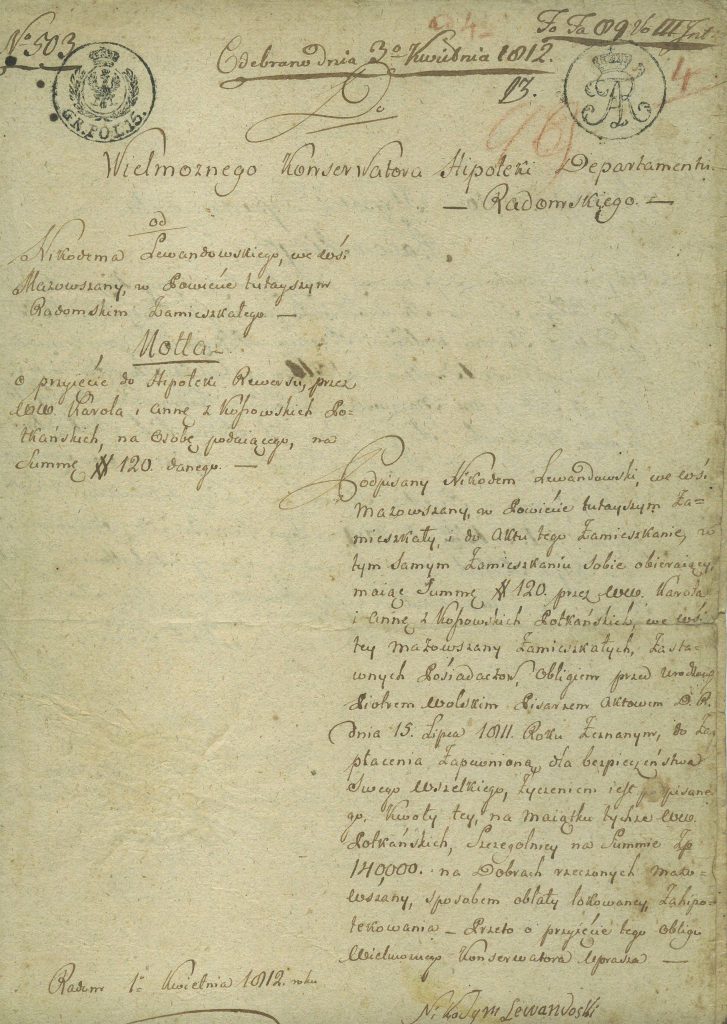 No 503
Fo Fa 89 Vo III Int:
Odebrano dnia 3o Kwietnia 1812.
13.
4
96
GR. POL. 15.
Do
Wielmoznego Konserwatora Hipoteki Departamentu
— Radomskiego. —
od
Nikodema Lewandowskiego, we wsi
Mazowszany, w Powiecie tutayszym
Radomskim Zamieszkałego —
Notta
o przyięcie do Hipoteki Rewersu, przez
WW. Karola i Annę z Kossowskich Po-
tkańskich, na Osobę podaiącego, na
Summę # 120. danego. —
Podpisany Nikodem Lewandowski, we wsi
Mazowszany, w Powiecie tutayszym Za-
mieszkały, i do Aktu tego Zamieszkanie, w
tym samym Zamieszkaniu sobie obieraiący,
maiąc Summę # 120. przez WW. Karola
i Annę z Kossowskich Potkańskich, we wsi
tey Mazowszany Zamieszkałych, Zasta-
wnych Posiadaczów, Obligiem przed Urodzonym
Piotrem Wolskim Pisarzem Aktowem D. R.
dnia 15. Lipca 1811. Roku Zeznanym, do Za-
płacenia Zapewnioną, dla bezpieczeństwa
Swego Wszelkiego, Życzeniem iest podpisane-
go, Kwoty tey, na maiątku tychże WW.
Potkańskich, Szczegolniey na Summie Zp
140,000. na Dobrach rzeczonych Mazo-
wszany, sposobem oblaty lokowaney, Zahipo-
tekowania — Przeto o przyięcie tego Obligu
Wielmoznego Konserwatora Uprasza —
Radom 1o Kwietnia 1812. roku
Nikodym Lewandoski